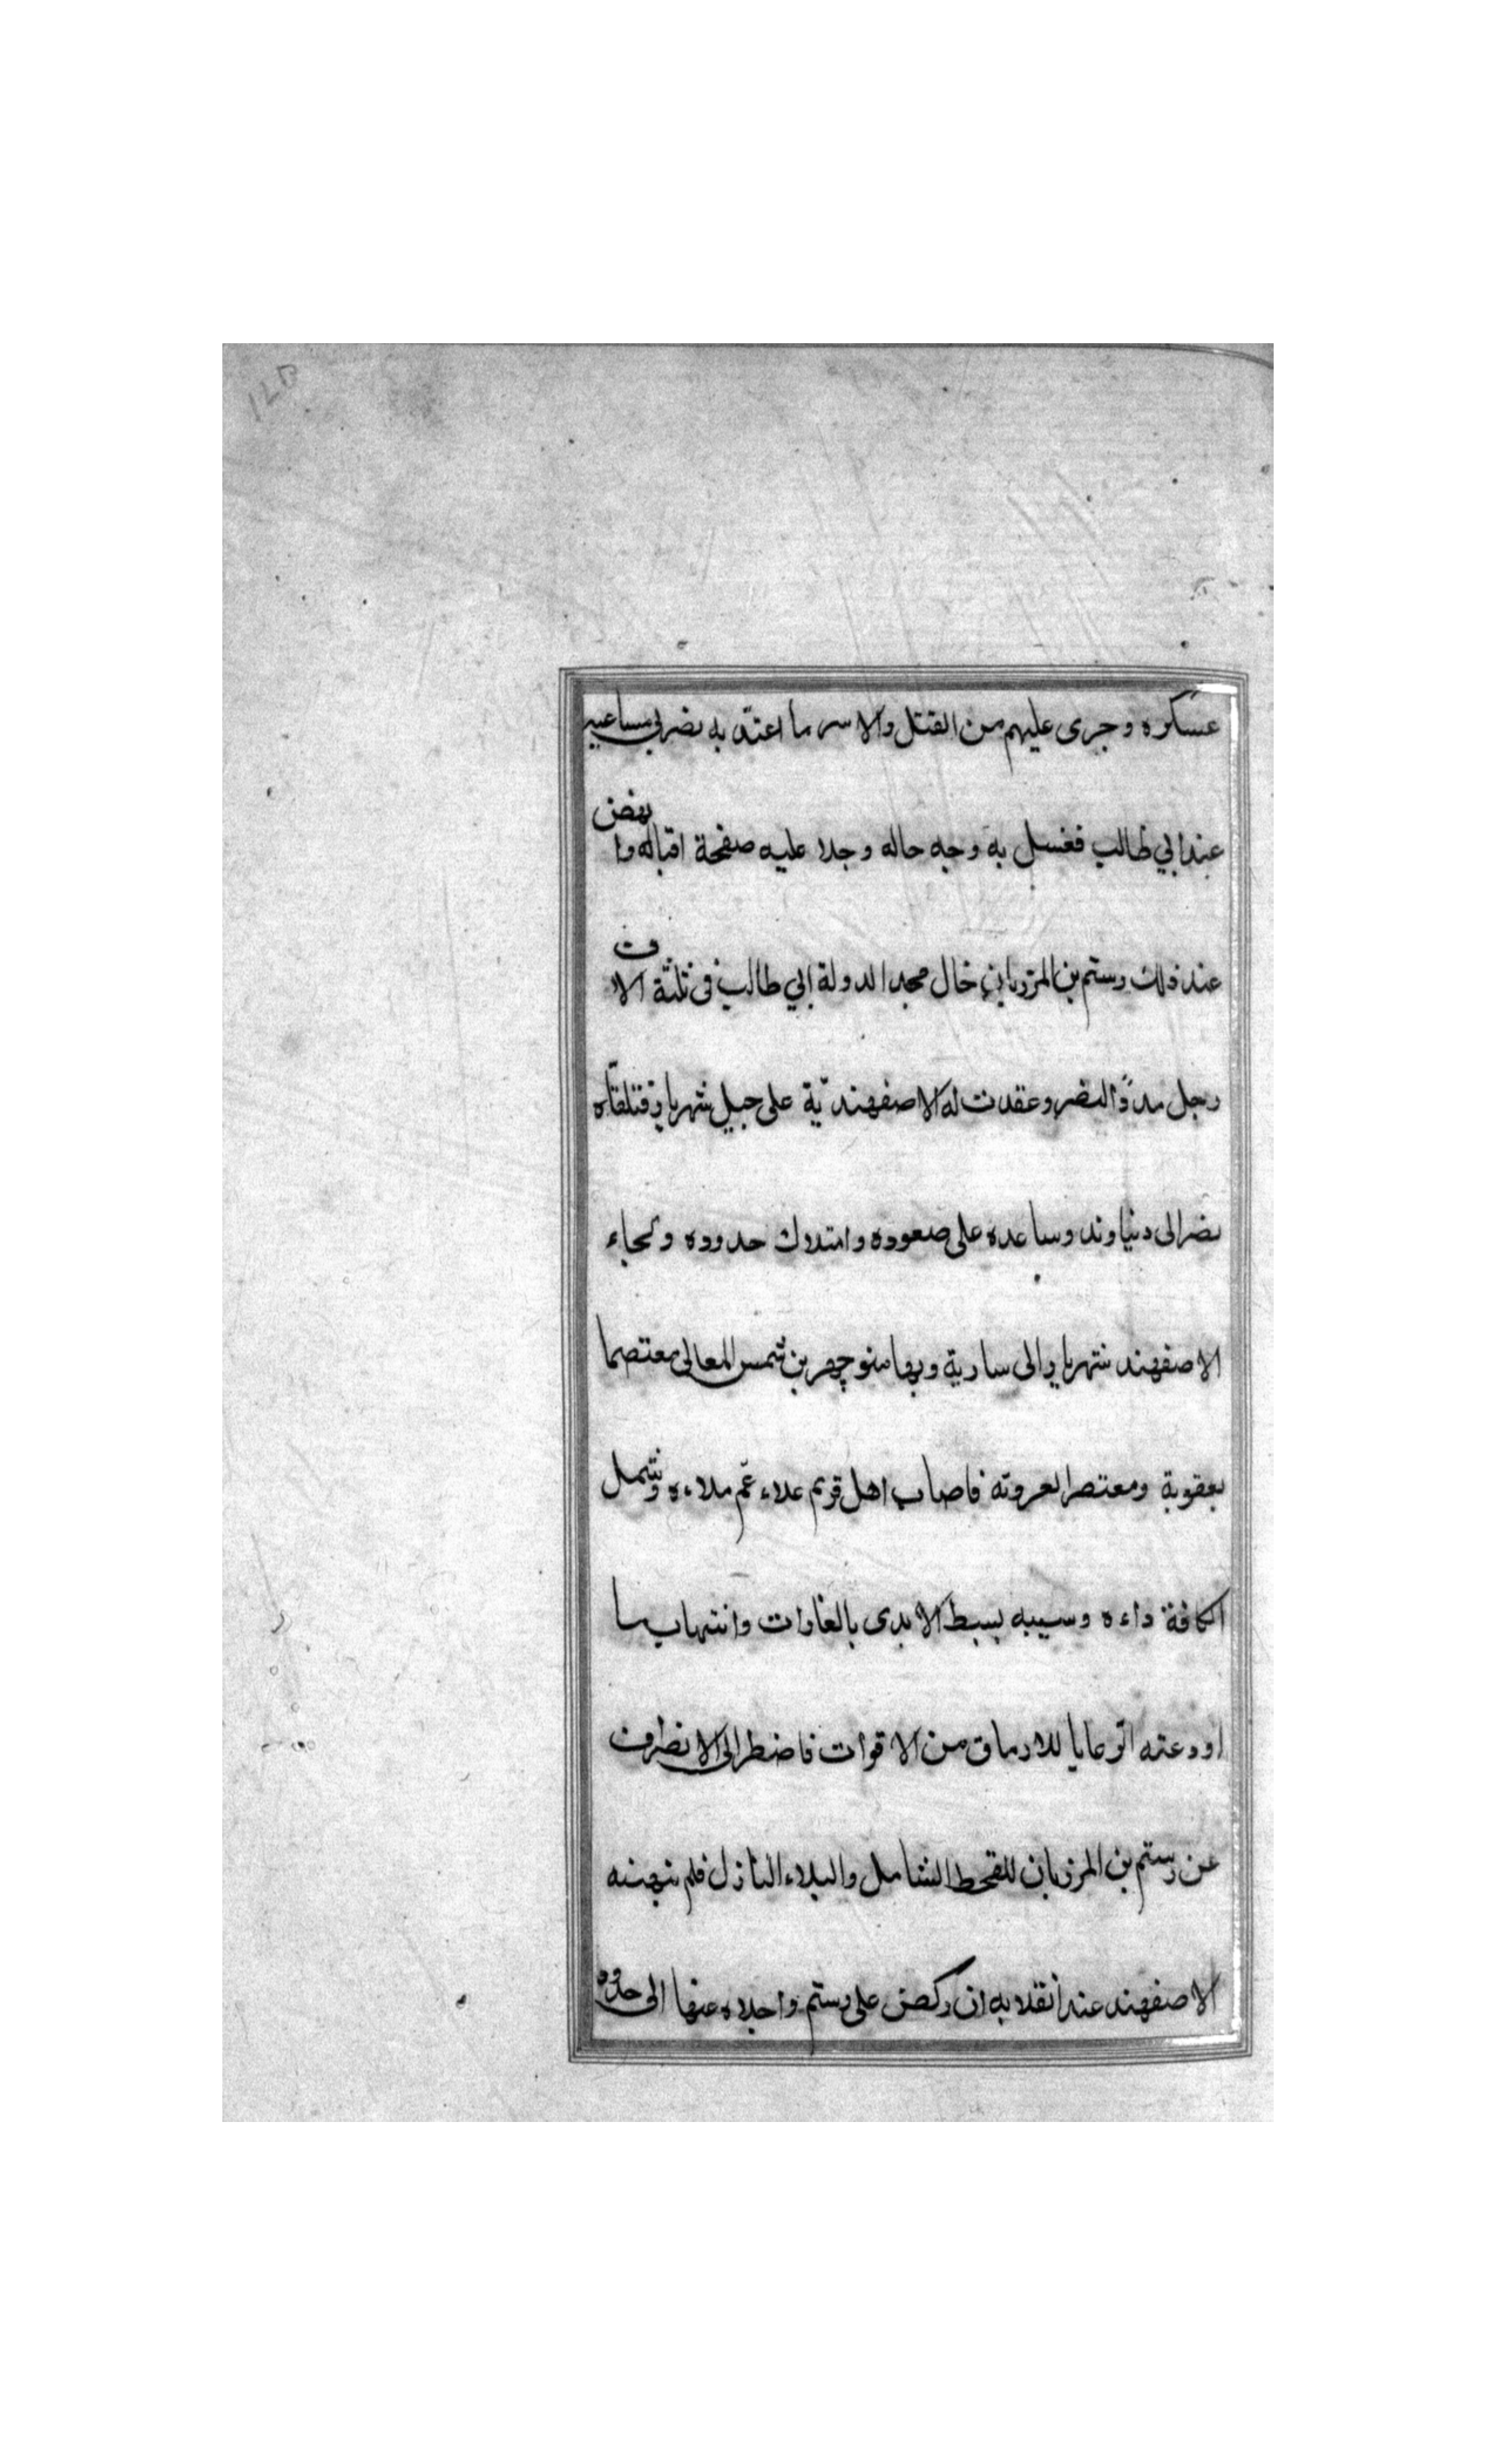 عسكره وجرى عليهم من القتل والاسر ما اعتد به نصر في مساعيه
عند ابي طالب فغسل به وجه حاله وجلا عليه صفحة اقباله وانهض
عند ذلك رستم بن المرزبان خال مجد الدولة ابي طالب فى ثلثة الاف
رجل مددًا لنصر وعقدت له الاصفهندّية على جبل شهريار فتلقاه
نصر الى دنباوند وساعده على صعوده وامتلاك حدوده والجاء
الاصفهند شهريار الى سارية وبها منوچهر بن شمس المعالى معتصما
بعقوبة ومعتصرا لعروته فاصاب اهل فريم غلاء عّم ملاءه وشمل
الكافة داءه وسببه بسط الايدى بالغارات وانتهاب ما
اودعته الرعايا للارماق من الاقوات فاضطر الى الانصراف
عن رستم بن المرزبان للقحط الشامل والبلاء النازل فلم ينهنه
الاصفهند عند انقلابه ان ركض على رستم واجلاه عنها الى حدود